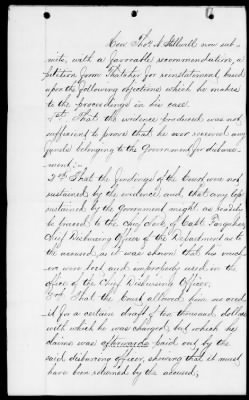 Hon. Thos A. Stilwell now sub-
mits, with a favorable recommendation, a
petition from Thatcher for reinstatement based
upon the following objections which he makes
to the proceedings in his case.
1st That the evidence produced was not
sufficient to prove that he ever received any
funds belonging to the Government for disburse-
ment;—
2nd That the findings of the Court were not
sustained by the evidence and that any loss
sustained by the Government might as readily
be traced to the chief clerk of Capt.
Chief Disbursing Officer of the Department as to
the accused, as it was shown that his vouch-
ers were lost and improperly used in the
office of the Chief Disbursing Officer;
3rd That the Court allowed him no cred-
it for a certain draft of ten thousand dollars
with which he was charged, but which he
claims was afterwards paid out by the
said disbursing officer, showing that it must
have been returned by the accused;